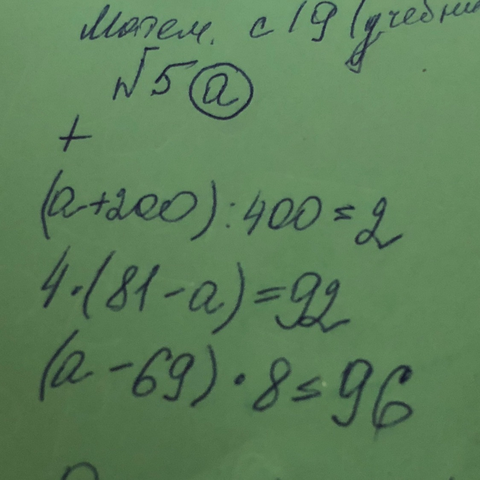 Матем. с 19 (учебник
№ 5 (а)
+
(а+200):400=2
4·(81-а)=92
(а-69)·8=96